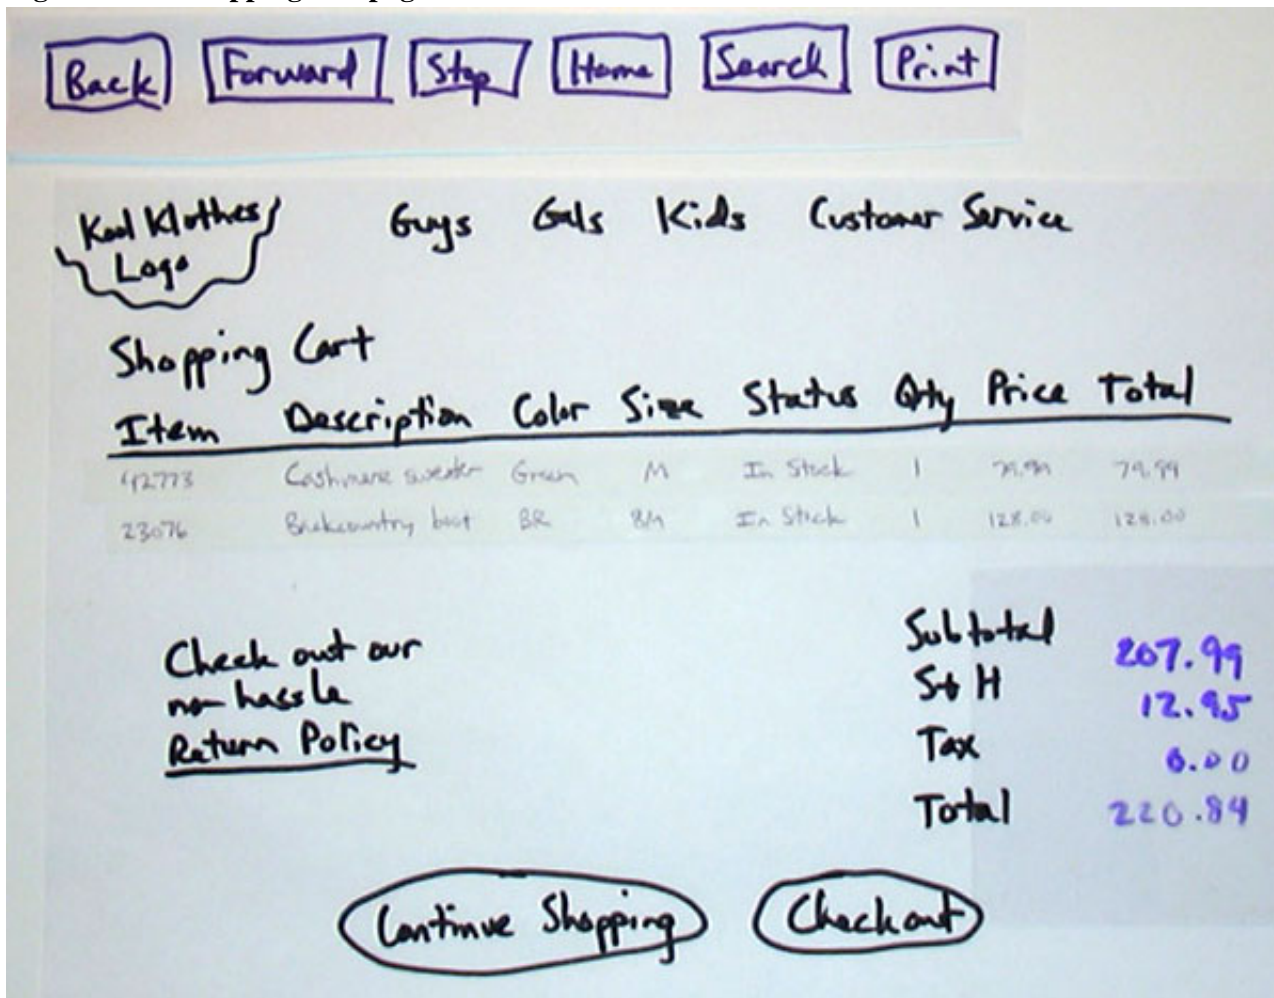 Back Forward Stop Home Search Print
Kool Klothes Guys Gals Kids Customer Service
Logo
Shopping Cart
Item Description Color Size Status Qty Price Total
42773 Cashmere sweater Green M In Stock 1 79.99 79.99
23076 Backcountry boot BR 8M In Stock 1 128.00 128.00
Check out our
no-hassle
Return Policy
Subtotal 207.99
S+H 12.95
Tax 0.00
Total 220.84
Continue Shopping Checkout